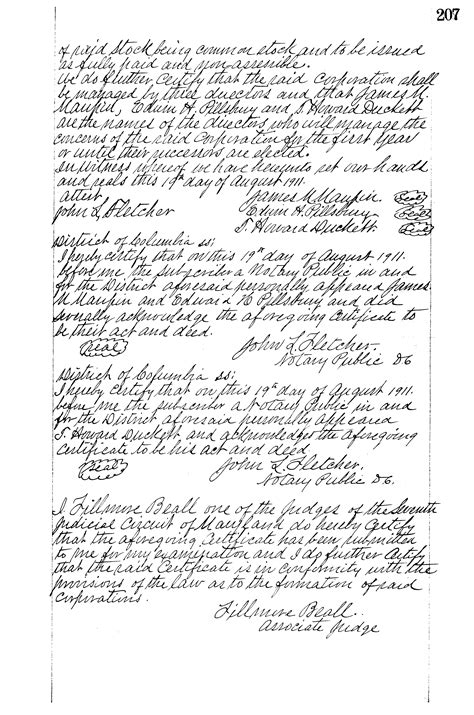 207
of said stock being common stock and to be issued
as fully paid and non-assessible.
We do further certify that the said Corporation shall
be managed by three directors and that James M.
Maupin, Edwin H. Pillsbury and T. Howard Duckett
are the names of the directors who will manage the
concerns of the said Corporation for the first year
or until their successors are elected.
In witness whereof we have hereunto set our hands
and seals this 19th day of August 1911.
attest James M Maupin. Seal
John L Fletcher Edwin H. Pillsbury Seal
T. Howard Duckett Seal
District of Columbia ss;
I hereby certify that on this 19th day of August 1911.
before me the subscriber a Notary Public in and
for the District aforesaid personally appeared James
M Maupin and Edward H Pillsbury and did
severally acknowledge the aforegoing certificate to
be their act and deed.
Seal John L Fletcher.
Notary Public DC
District of Columbia ss;
I hereby certify that on this 19th day of August 1911.
before me the subscriber a Notary Public in and
for the District aforesaid personally appeared
T. Howard Duckett and acknowledge the aforegoing
certificate to be his act and deed
Seal John L Fletcher.
Notary Public DC.
I Fillmore Beall one of the Judges of the Seventh
Judicial Circuit of Maryland do hereby Certify
that the aforegoing Certificate has been submitted
to me for my examination and I do further Certify
that the said Certificate is in conformity with the
provisions of the law as to the formation of said
corporations.
Fillmore Beall.
Associate Judge